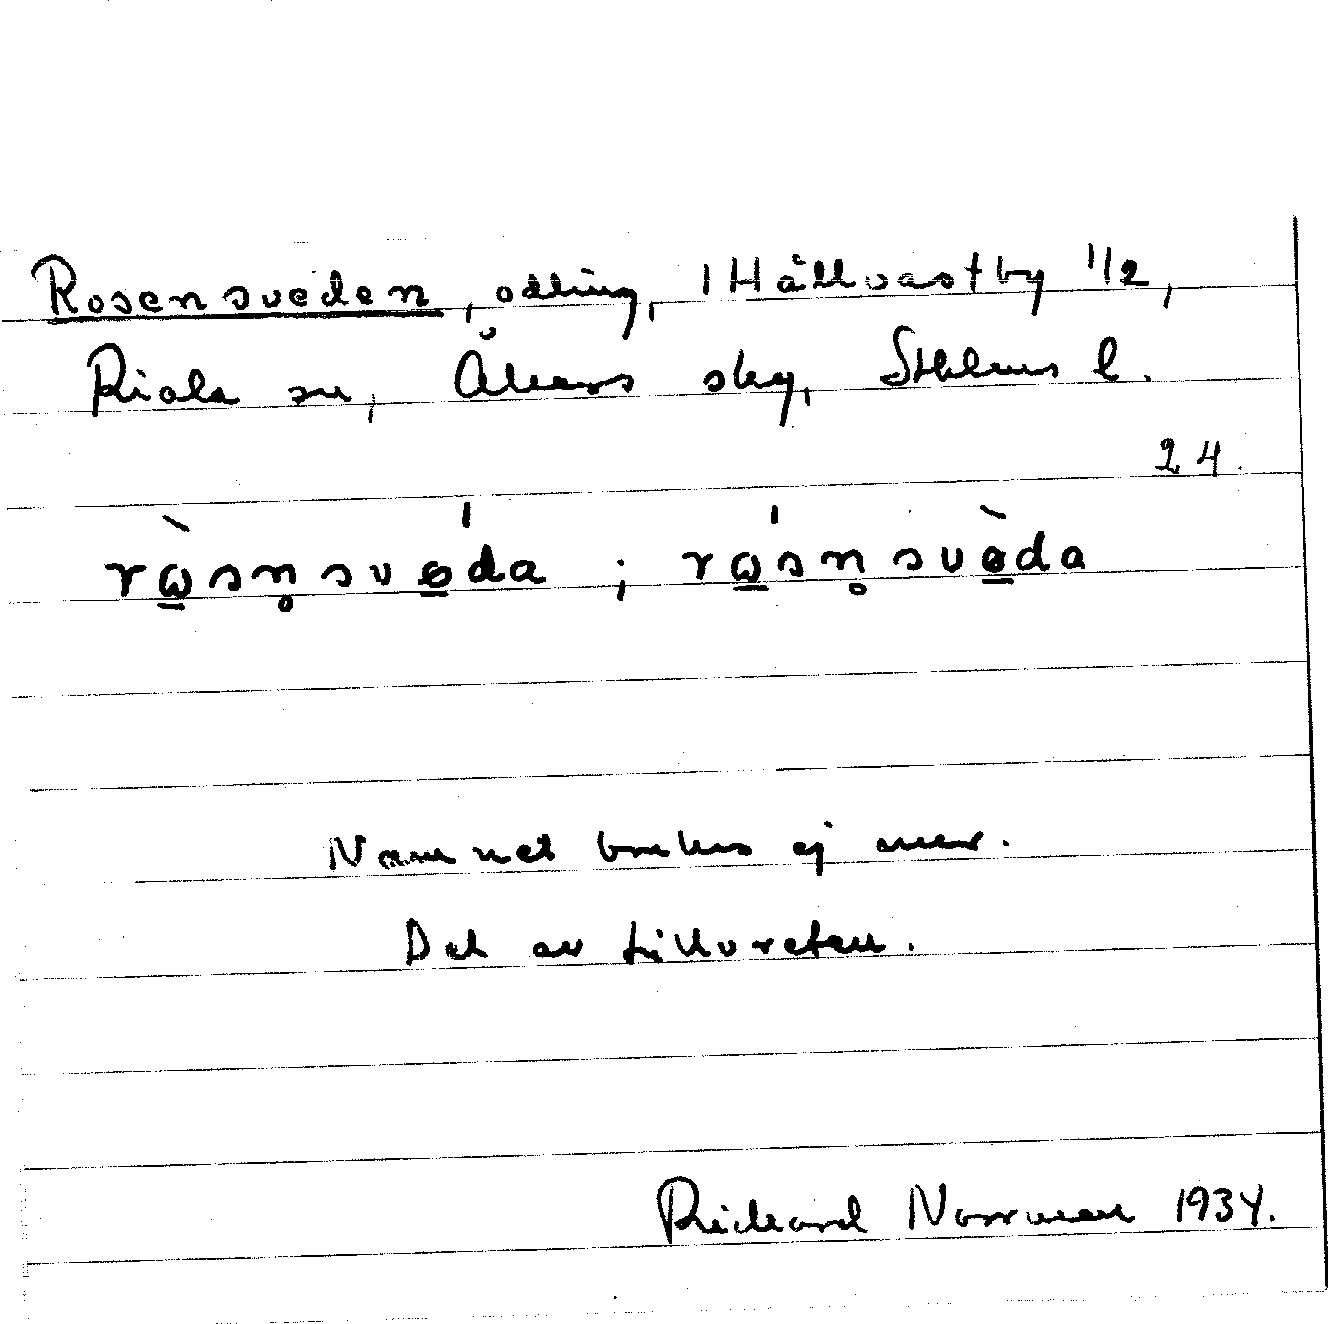 Rosensveden, odling, 1 Hällvastby 1/2,
Riala sn, Åkers skg, Sthlms l.
24.
rὼ̲sn̥svɵ̲́da ; rώ̲sn̥svɵ̲̀da
Namnet brukas ej mer.
Del av
Rickard Norrman 1934.